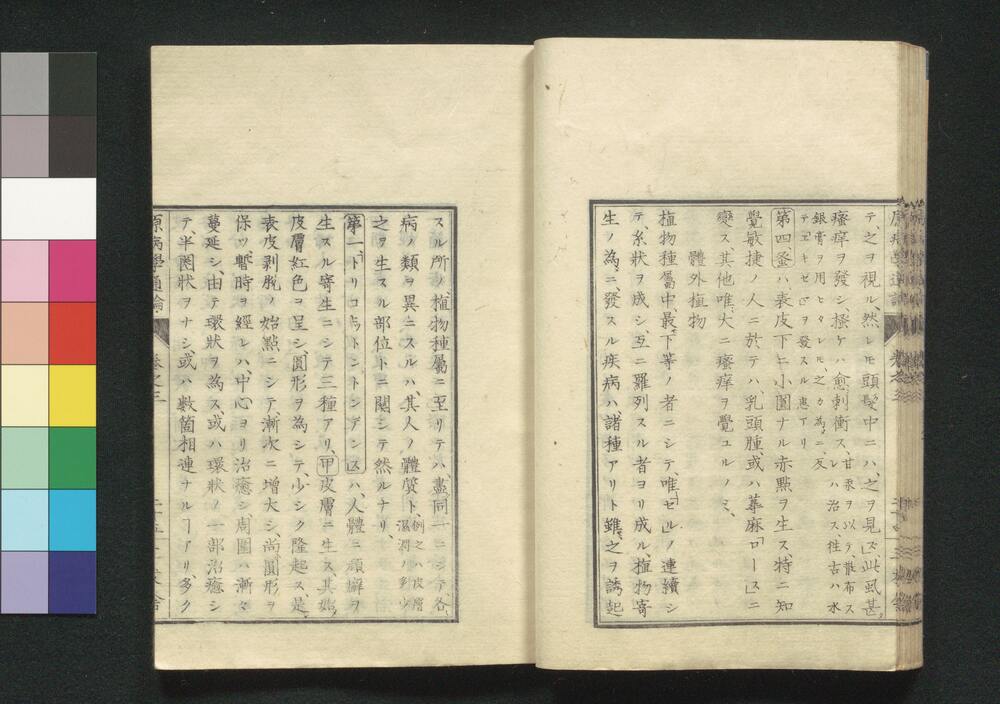 テ、之ヲ視ル然レモ頭髪中ニハ、之ヲ見ズ、此虱甚
瘙痒ヲ發シ、搔ケハ愈刺衝ス、甘汞ヲ以テ、散布ス
レハ治ス往古ハ水
銀膏ヲ用ヒタレモ之カ為メニ、反
テヱキゼマヲ發スル患アリ
第四、蚤ハ、表皮下ニ小圓ナル赤點ヲ生ス特ニ知
覺敏捷ノ人ニ於テハ、乳頭腫或ハ蕁麻ロース」ニ
變ス、其他唯、大ニ瘙痒ヲ覺ユルノミ、
體外植物
植物種屬中、最下等ノ者ニシテ、唯「セル」ノ連續シ
テ、糸狀ヲ成シ、互ニ羅列スル者ヨリ成ル、植物寄
生ノ為メニ、發スル疾病ハ、諸種アリト雖モ、之ヲ誘起
スル所ノ植物種屬ニ至リテハ、盡同一ニシテ、各
病ノ類ヲ異ニスルハ其人ノ體質ト、例之ハ皮膚
濕潤ノ多少
之ヲ生スル部位トニ關シテ然ルナリ、
第一、トリコ トントンデンス」ハ、人體ニ頑癬ヲ
生スル寄生ニシテ三種アリ、甲 皮膚ニ生ス其始、
皮膚紅色ヲ呈シ圓形ヲ為シテ、少シク隆起ス、是、
表皮剥脫ノ始點ニシテ、漸次ニ増大シ、尚圓形ヲ
保ツ、暫時ヲ經レハ、中心ヨリ治癒シ、周圍ハ漸々
蔓延シ、由テ環狀ヲ為ス或ハ環狀ノ一部治癒シ
テ、半圏狀ヲナシ或ハ數箇相連ナルヿアリ多ク
原病學通論
卷之三